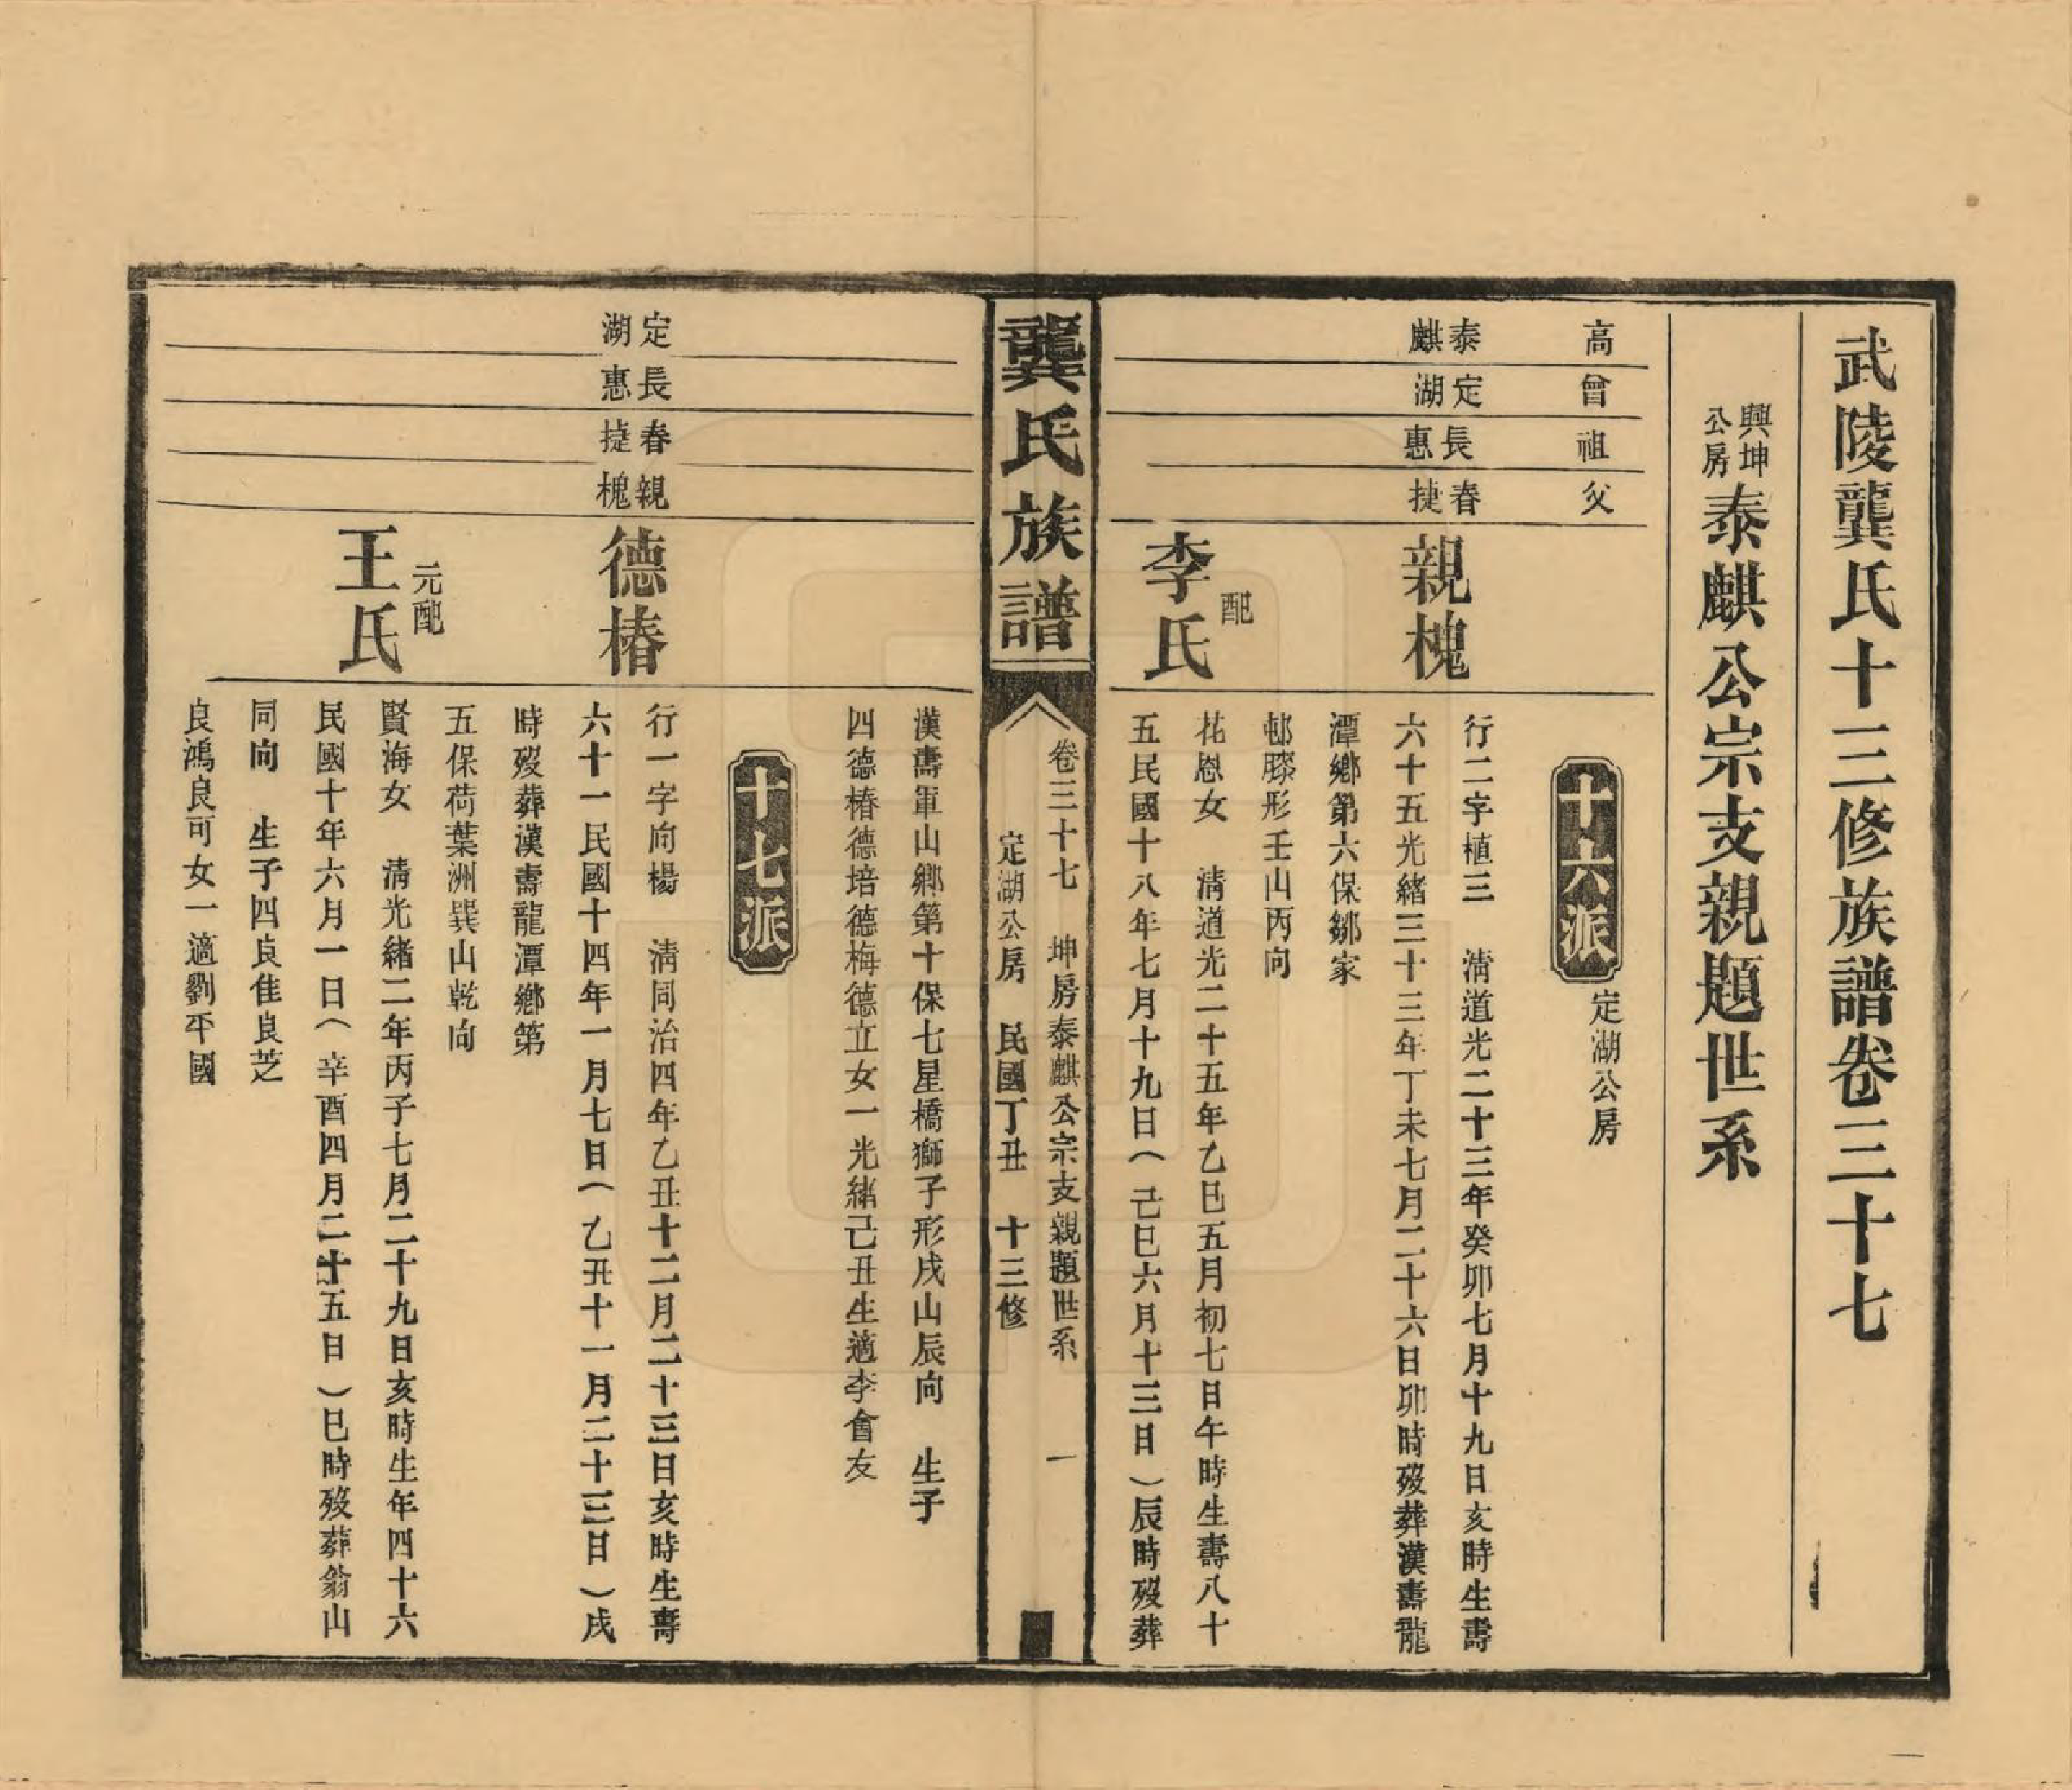 武陵龔氏十三修族譜卷三十七
興坤公房泰麒公宗支親題世系
高
曾
祖
父
十六派
定湖公房
泰麒
定湖
長惠
春捷
親槐
行二字植三　清道光二十三年癸卯七月十九日亥時生壽
六十五光緒三十三年丁未七月二十六日卯時歿葬漢壽龍
潭鄉第六保鄒家
邨膝形壬山丙向
配
李氏
花恩女　清道光二十五年乙巳五月初七日午時生壽八十
五民國十八年七月十九日（己巳六月十三日）辰時歿葬
龔氏族譜
卷三十七　坤房泰麒公宗支親題世系　一
定湖公房　民國丁丑　十三修
漢壽軍山鄉第十保七星橋獅子形戌山辰向　生子
四德椿德培德梅德立女一光緒己丑生適李會友
十七派
定湖
長惠
春捷
親槐
德椿
行一字向楊　清同治四年乙丑十二月二十三日亥時生壽
六十一民國十四年一月七日（乙丑十一月二十三日）戌
時歿葬漢壽龍潭鄉第
五保荷葉洲巽山乾向
元配
王氏
賢海女　清光緒二年丙子七月二十九日亥時生年四十六
民國十年六月一日（辛酉四月二十五日）巳時歿葬翁山
同向　生子四良佳良芝
良鴻良可女一適劉平國